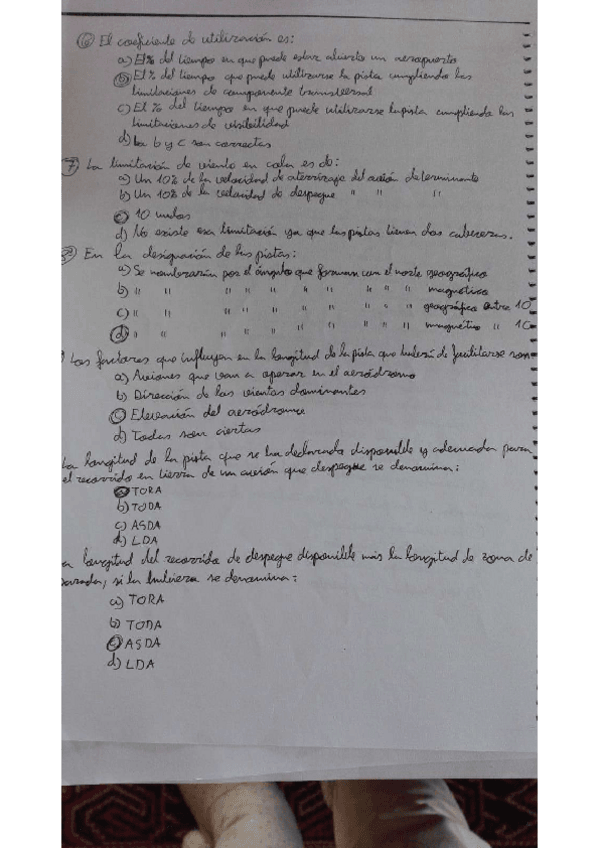 6 El coeficiente de utilización es:
a) El % del tiempo en que puede estar abierto un aeropuerto
b) El % del tiempo que puede utilizarse la pista cumpliendo las
limitaciones de componente transversal
c) El % del tiempo en que puede utilizarse la pista cumpliendo las
limitaciones de visibilidad
d) La b y c son correctas
7) La limitación de viento en cola es de:
a) Un 10% de la velocidad de aterrizaje del avión determinante
b) Un 10% de la velocidad de despegue " " "
c) 10 nudos
d) No existe esa limitación ya que las pistas tienen dos cabeceras.
En la designación de las pistas:
a) Se nombrarán por el ángulo que forman con el norte geográfico
b) " " " " " " " " " magnético
c) " " " " " " " " " geográfico entre 10
d) " " " " " " " " " magnético " 10
Los factores que influyen en la longitud de la pista que deberá de facilitarse son
a) Aviones que van a operar en el aeródromo
b) Dirección de los vientos dominantes
c) Elevación del aeródromo
d) Todas son ciertas
La longitud de la pista que se ha declarado disponible y adecuada para
el recorrido en tierra de un avión que despegue se denomina:
a) TORA
b) TODA
c) ASDA
d) LDA
a longitud del recorrido de despegue disponible más la longitud de zona de
parada, si la hubiera se denomina:
a) TORA
b) TODA
c) ASDA
d) LDA